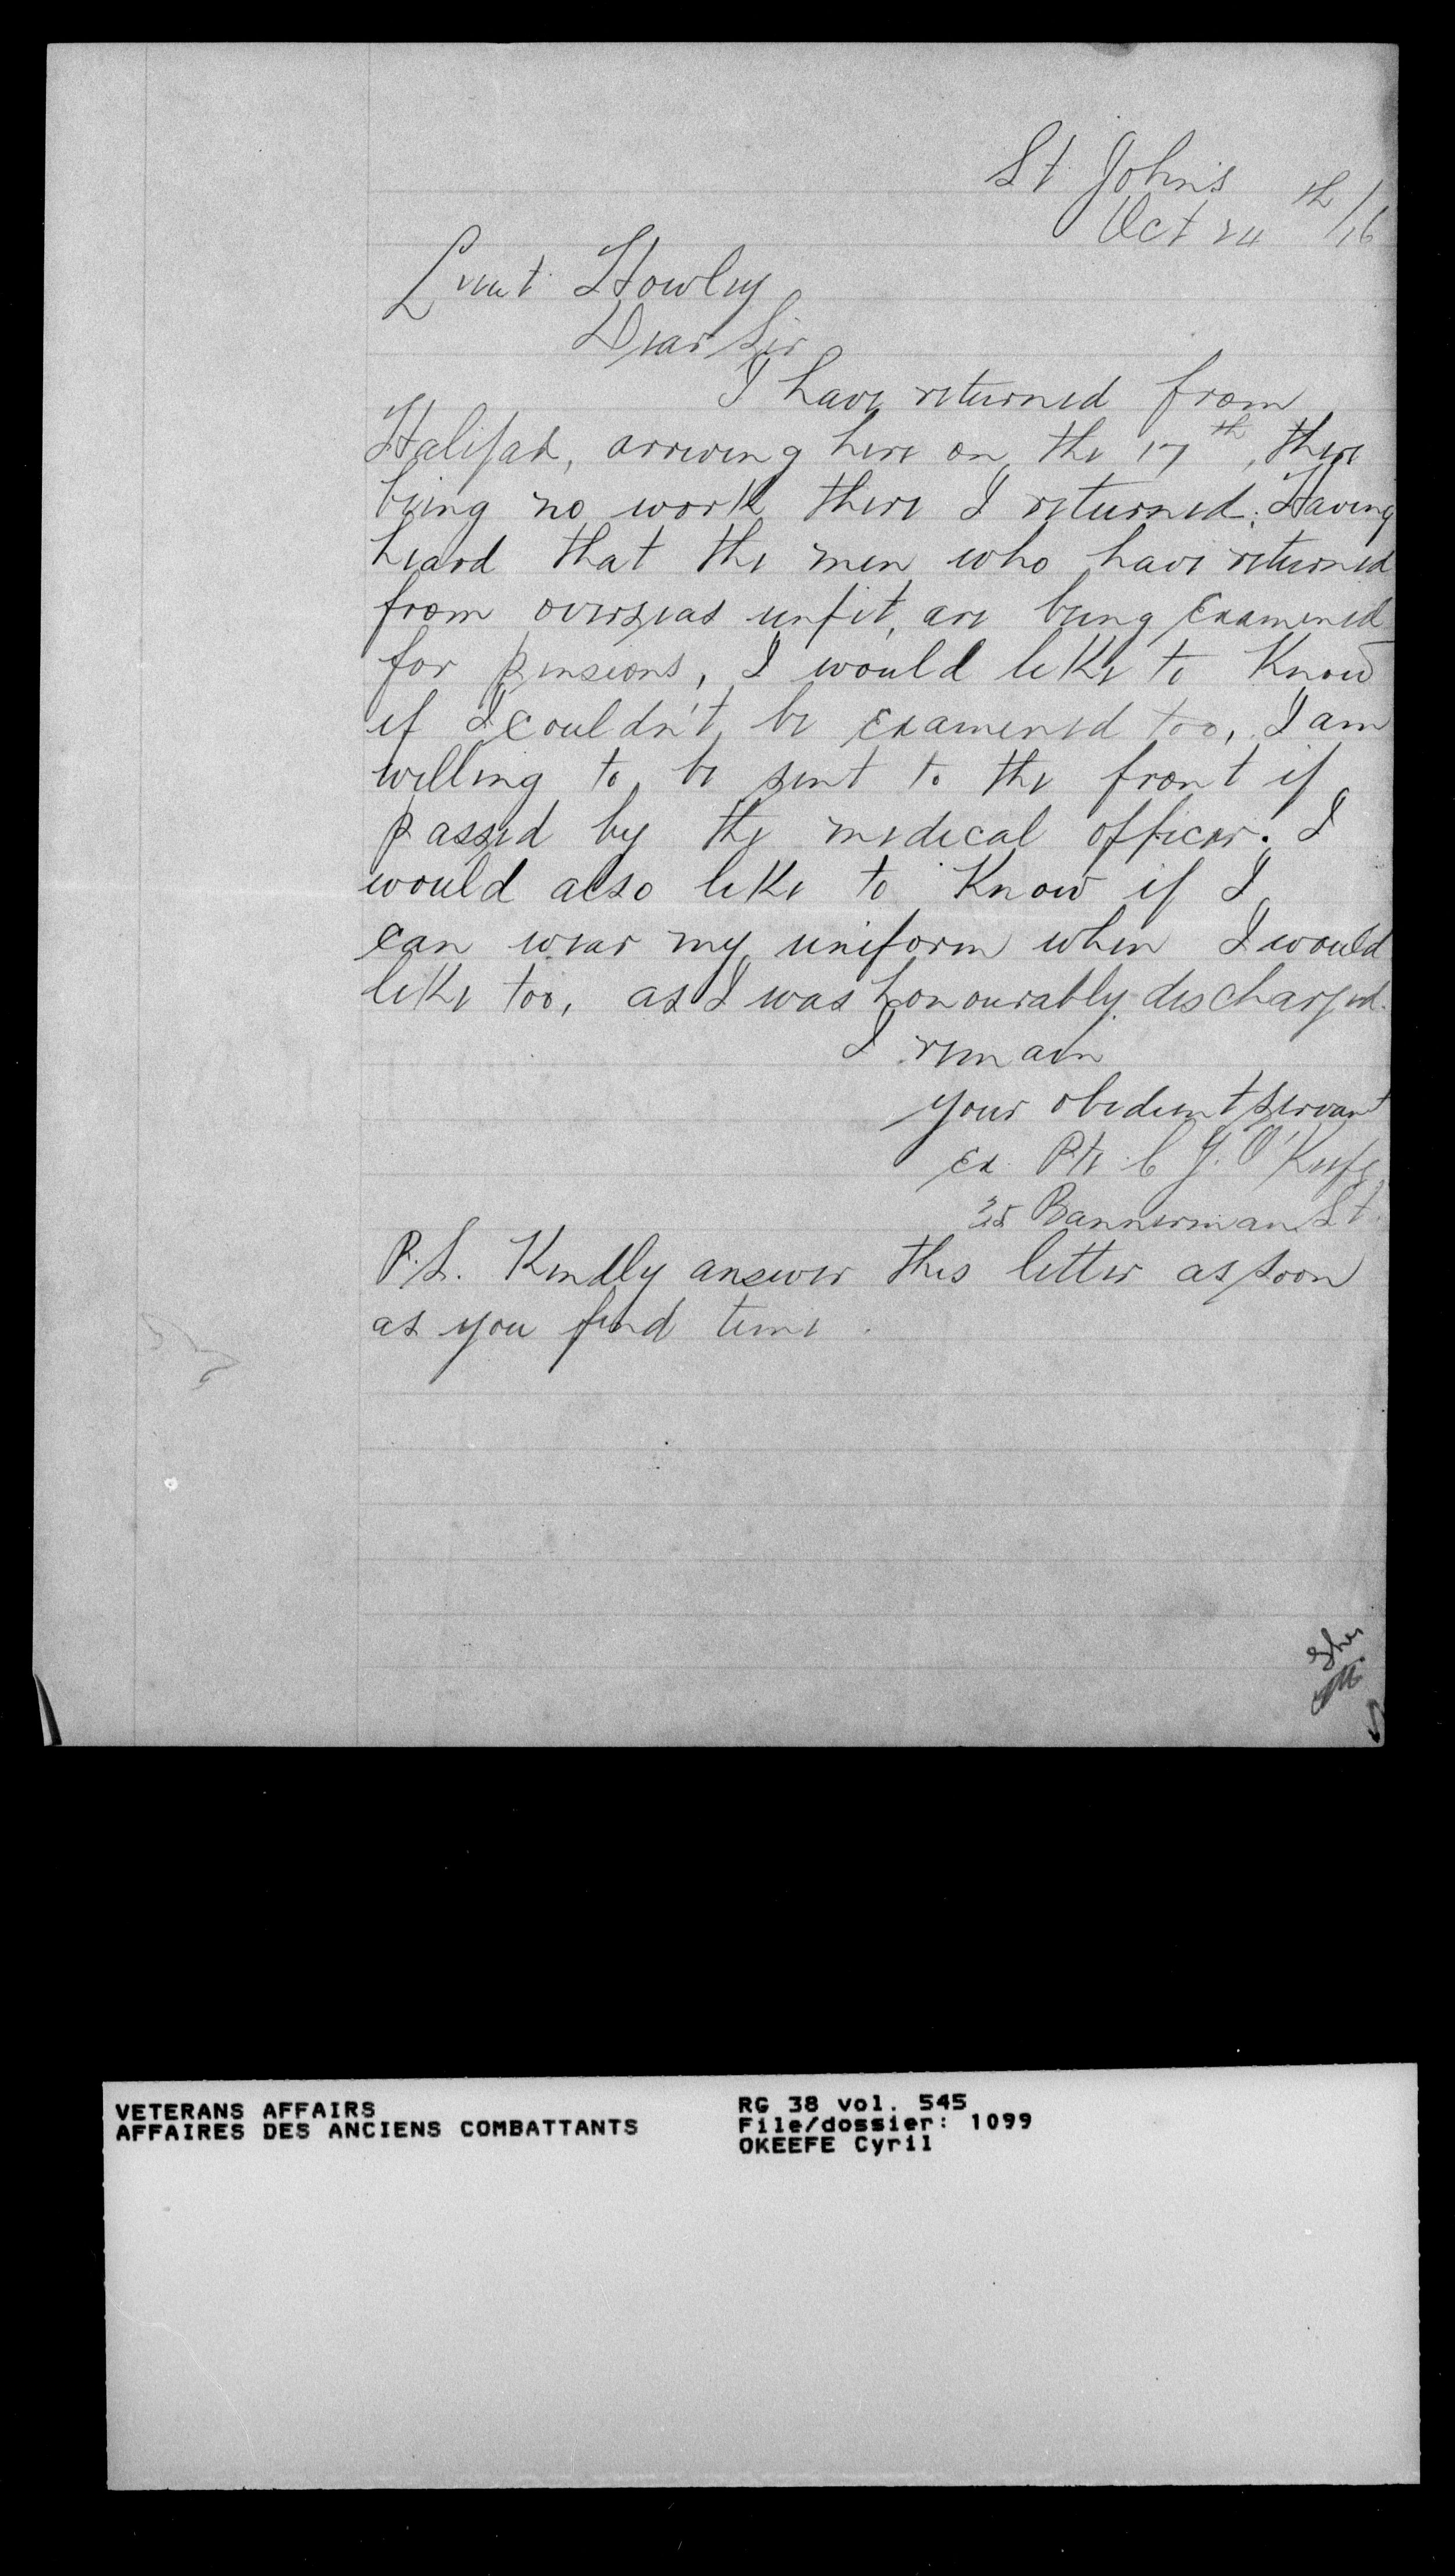 St John's
Oct 24th/16
Lieut Howley
Dear Sir
I have returned from
Halifax, arriving here on the 17th, there
being no work there I returned. Having
heard that the men who have returned
from overseas unfit, are being examined
for pensions, I would like to know
if I couldn't be examined too, I am
willing to be sent to the front if
passed by the medical officer. I
would also like to know if I
can wear my uniform when I would
like too, as I was honourably discharged.
I remain
your obedient servant
Ex Pte C J. O'Keefe
35 Bannerman St.
P.S. Kindly answer this letter as soon
as you find time.
VETERANS AFFAIRS
AFFAIRES DES ANCIENS COMBATTANTS
RG 38 vol. 545
File/dossier: 1099
OKEEFE Cyril